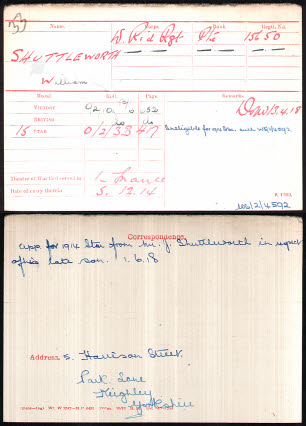 Name. Corps. Rank Regtl. No.
SHUTTLEWORTH W. Rid. Rgt. Pte 15650
William
Medal. Roll. Page. Remarks.
VICTORY O/2/ 10 6 652 D of W 13.4.18
BRITISH do do
15 STAR O/2/33 47 Ineligible for 1914 Star, auth WS/2/4592
Theatre of War first served in 1. France
Date of entry therein 5.12.14
K 1380.
WS/2/4592
Correspondence.
App for 1914 Star from Mr. J. Shuttleworth in respect
of his late son. 1.6.18
Address. 5. Harrison Street.
Park Lane
Keighley
Yorkshire